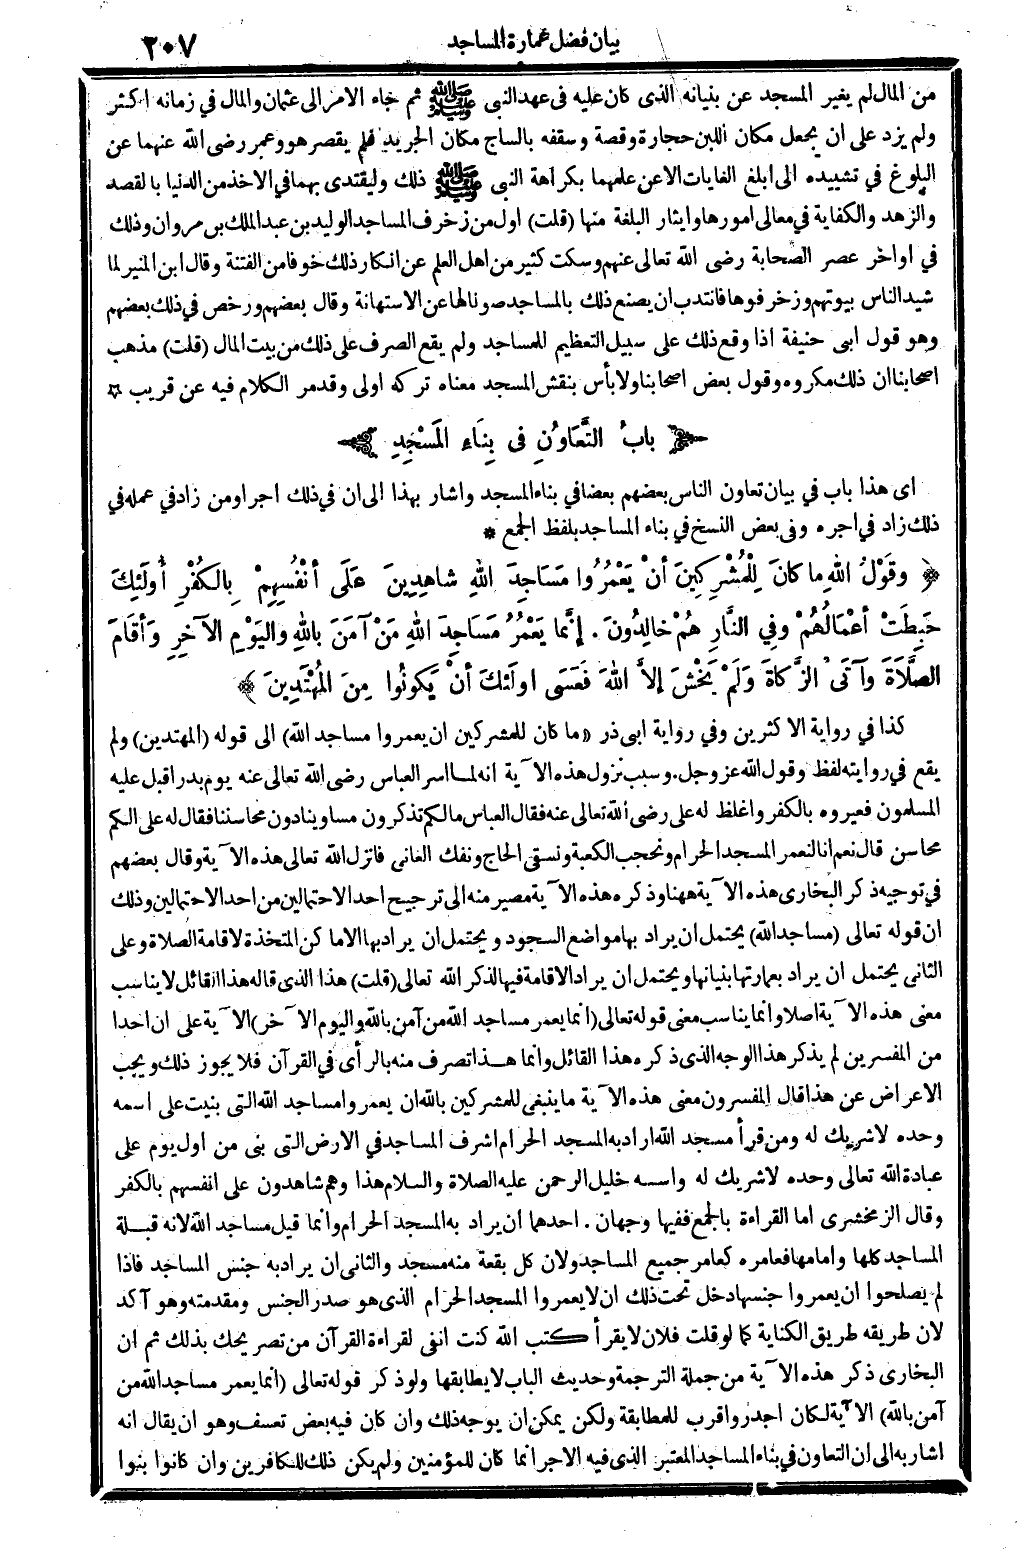 بيان فضل عمارة المساجد
٢٠٧
من المال لم يغير المسجد عن بنيانه الذى كان عليه فى عهد النبى ﷺ ثم جاء الامر الى عثمان والمال في زمانه اكثر
ولم يزد على ان يجعل مكان اللبن حجارة وقصة وسقفه بالساج مكان الجريد فلم يقصر هو وعمر رضى الله عنهما عن
البلوغ في تشييده الى ابلغ الغايات الا عن علمهما بكراهة النبى ﷺ ذلك وليقتدى بهما في الاخذ من الدنيا بالقصد
والزهد والكفاية في معالى امورها وايثار البلغة منها (قلت) اول من زخرف المساجد الوليد بن عبد الملك بن مروان وذلك
في اواخر عصر الصحابة رضى الله تعالى عنهم وسكت كثير من اهل العلم عن انكار ذلك خوفا من الفتنة وقال ابن المنير لما
شيد الناس بيوتهم وزخرفوها فانتدب ان يصنع ذلك بالمساجد صونا لها عن الاستهانة وقال بعضهم ورخص في ذلك بعضهم
وهو قول ابى حنيفة اذا وقع ذلك على سبيل التعظيم للمساجد ولم يقع الصرف على ذلك من بيت المال (قلت) مذهب
اصحابنا ان ذلك مكروه وقول بعض اصحابنا ولا بأس بنقش المسجد معناه تركه اولى وقد مر الكلام فيه عن قريب ☆
بابُ التَّعَاوُنِ فى بِنَاءِ المَسْجِدِ
اى هذا باب في بيان تعاون الناس بعضهم بعضا في بناء المسجد واشار بهذا الى ان في ذلك اجرا ومن زاد في عمله في
ذلك زاد في اجره وفى بعض النسخ في بناء المساجد بلفظ الجمع *
﴿ وقَوْلُ اللهِ ما كانَ لِلْمُشْرِكِينَ أنْ يَعْمُرُوا مَسَاجِدَ اللهِ شاهِدِينَ عَلَى أنْفُسِهِمْ بِالكُفْرِ أُولَئِكَ
حَبِطَتْ أعْمَالُهُمْ وفِي النَّارِ هُمْ خالِدُونَ . إنَّما يَعْمُرُ مَسَاجِدَ اللهِ مَنْ آمَنَ باللهِ واليَوْمِ الآخِرِ وَأقَامَ
الصَّلَاةَ وَآتَى الزَّكاةَ وَلَمْ يَخْشَ إلاَّ اللهَ فَعَسَى اولَئِكَ أنْ يَكونُوا مِنَ المُهْتَدِينَ ﴾
كذا في رواية الاكثرين وفي رواية ابى ذر (ما كان للمشركين ان يعمروا مساجد الله) الى قوله (المهتدين) ولم
يقع في روايته لفظ وقول الله عز وجل. وسبب نزول هذه الآية انه لما اسر العباس رضى الله تعالى عنه يوم بدر اقبل عليه
المسلمون فعيروه بالكفر واغلظ له على رضى الله تعالى عنه فقال العباس مالكم تذكرون مساوينا دون محاسننا فقال له على الكم
محاسن قال نعم انا لنعمر المسجد الحرام ونحجب الكعبة ونسقى الحاج ونفك العانى فانزل الله تعالى هذه الآية وقال بعضهم
في توجيه ذكر البخارى هذه الآية ههنا وذكره هذه الآية مصير منه الى ترجيح احد الاحتمالين من احد الاحتمالين وذلك
ان قوله تعالى (مساجد الله) يحتمل ان يراد بها مواضع السجود ويحتمل ان يراد بها الاماكن المتخذة لاقامة الصلاة وعلى
الثانى يحتمل ان يراد بعمارتها بنيانها ويحتمل ان يراد الاقامة فيها لذكر الله تعالى (قلت) هذا الذى قاله هذا القائل لا يناسب
معنى هذه الآية اصلا وانما يناسب معنى قوله تعالى (انما يعمر مساجد الله من آمن بالله واليوم الآخر) الآية على ان احدا
من المفسرين لم يذكر هذا الوجه الذى ذكره هذا القائل وانما هذا تصرف منه بالرأى في القرآن فلا يجوز ذلك ويجب
الاعراض عن هذا قال المفسرون معنى هذه الآية ما ينبغى للمشركين بالله ان يعمروا مساجد الله التى بنيت على اسمه
وحده لا شريك له ومن قرأ مسجد الله اراد به المسجد الحرام اشرف المساجد في الارض التى بنى من اول يوم على
عبادة الله تعالى وحده لا شريك له واسسه خليل الرحمن عليه الصلاة والسلام هذا وهم شاهدون على انفسهم بالكفر
وقال الزمخشرى اما القراءة بالجمع ففيها وجهان . احدهما ان يراد به المسجد الحرام وانما قيل مساجد الله لانه قبلة
المساجد كلها وامامها فعامره كعامر جميع المساجد ولان كل بقعة منه مسجد والثانى ان يراد به جنس المساجد فاذا
لم يصلحوا ان يعمروا جنسها دخل تحت ذلك ان لا يعمروا المسجد الحرام الذى هو صدر الجنس ومقدمته وهو آكد
لان طريقه طريق الكناية كما لو قلت فلان لا يقرأ كتب الله كنت انفى لقراءة القرآن من تصريحك بذلك ثم ان
البخارى ذكر هذه الآية من جملة الترجمة وحديث الباب لا يطابقها ولو ذكر قوله تعالى (انما يعمر مساجد الله من
آمن بالله) الآية لكان اجدر واقرب للمطابقة ولكن يمكن ان يوجه ذلك وان كان فيه بعض تعسف وهو ان يقال انه
اشار به الى ان التعاون في بناء المساجد المعتبر الذى فيه الاجر انما كان للمؤمنين ولم يكن ذلك للكافرين وان كانوا بنوا